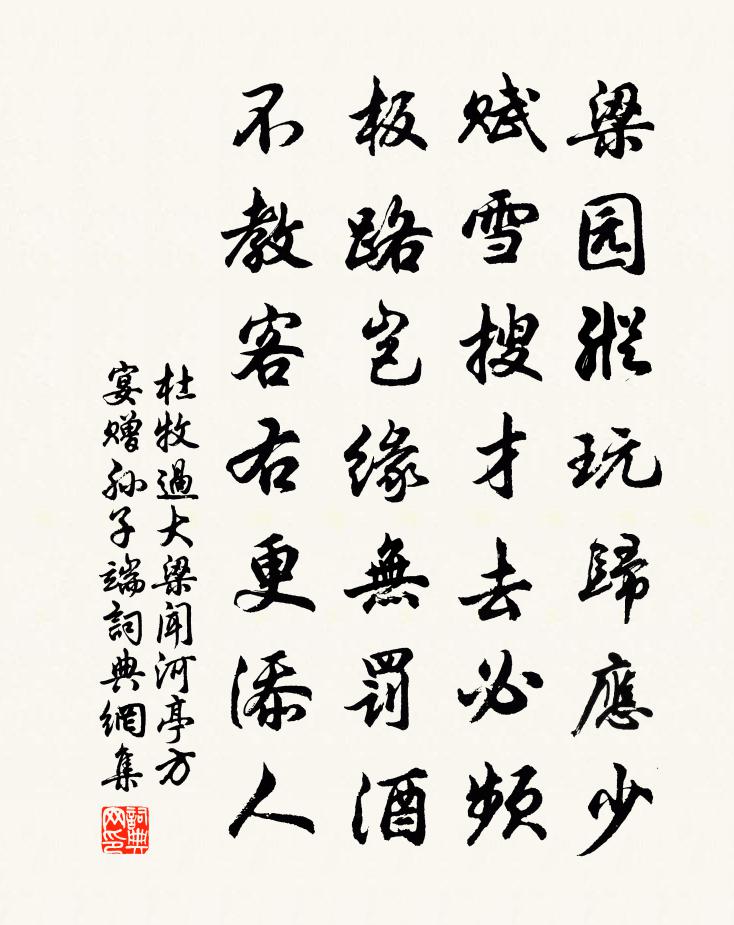 梁园縱玩歸應少
赋雪搜才去必頻
板路岂缘無罰酒
不教客右更添人
杜牧過大梁闻河亭方
宴赠孙子端詞典網集
詞典网印